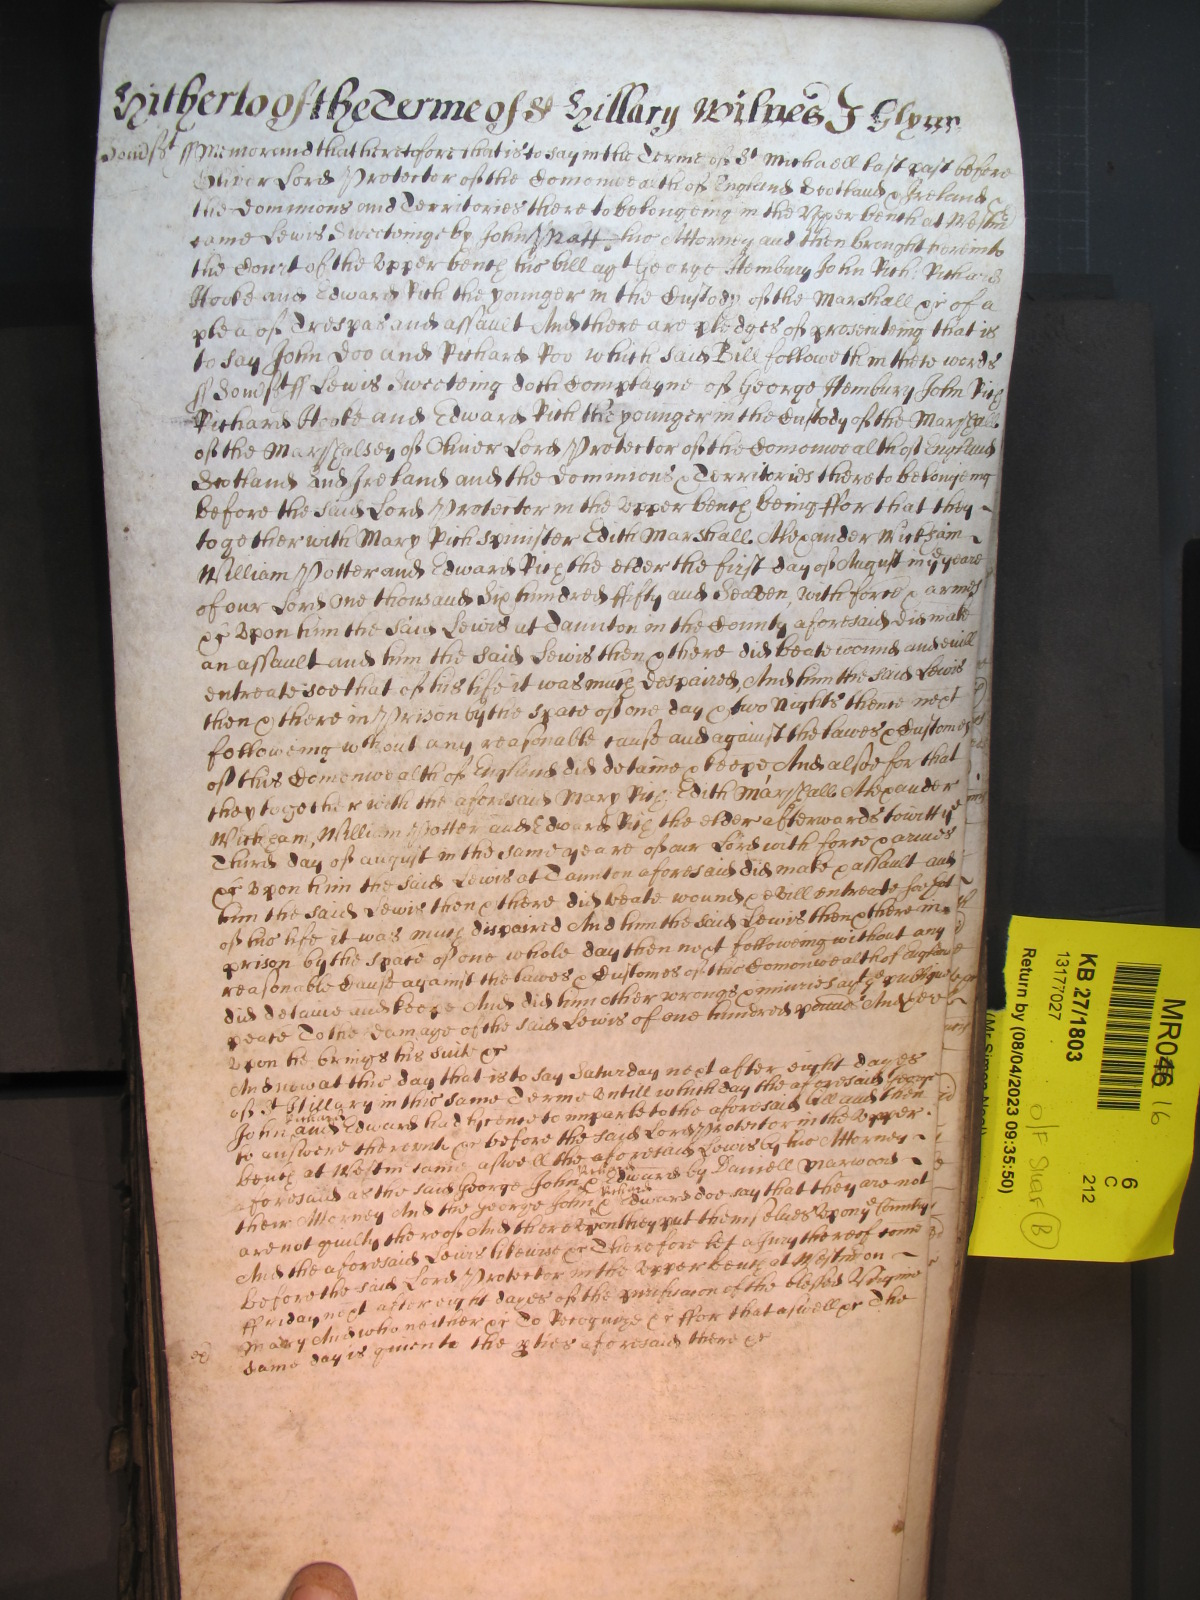 Hitherto of the Terme of St Hillary Wittnes J Glynn
Somst ss Memorand that heretofore that is to say in the Terme of St Michaell last past before
Oliver Lord Protector of the Comonwealth of England Scotland & Ireland &
the Dominions and Territories thereto belongeing in the Upper bench at Westm
came Lewis Sweeteinge by John Pratt his Attorney and then brought here into
the Court of the Upper bench his bill agt George Hembury John Rich Richard
Hooke and Edward Rich the younger in the Custody of the Marshall &c of a
plea of Trespas and assault And there are pledges of prosecuteing that is
to say John Doo and Richard Roo which said Bill followeth in these words
ss Somst ss Lewis Sweeteing doth Complayne of George Hembury John Rich
Richard Hooke and Edward Rich the younger in the Custody of the Marshall
of the Marshalsey of Oliver Lord Protector of the Comonwealth of England
Scotland and Ireland and the Dominions & Territories thereto belongeing
before the said Lord Protector in the Upper bench being ffor that they
together with Mary Rich spinister Edith Marshall Alexander Wickham
William Potter and Edward Rich the elder the first day of August in ye yeare
of our Lord One thousand Six hundred ffifty and Seaven, with force & armes
&c Upon him the said Lewis at Taunton in the County aforesaid did make
an assault and him the said Lewis then & there did beate wound and evill
entreate soe that of his life it was much despaired, And him the said Lewis
then & there in Prison by the space of one day & two Nights thence next
followeing without any reasonable cause and against the lawes & Customes
of this Comonwealth of England did detaine & keepe And alsoe for that
they together with the aforesaid Mary Rich Edith Marshall Alexander
Wickham, William Potter and Edward Rich the elder afterwards towitt ye
Third day of August in the same yeare of our Lord with force & armes
&c Upon him the said Lewis at Taunton aforesaid did make & assault and
him the said Lewis then & there did beate wound & evill entreate soe that
of his life it was much dispaired And him the said Lewis then & there in
prison by the space of one whole day then next followeing without any
reasonable Cause against the lawes & Customes of this Comonwealth of England
did detaine and keepe And did him other wrongs & iniuries agt ye publique
peace To the damage of the said Lewis of one hundred pounds And
Upon he brings his suite &c
And now at this day that is to say Saturday next after eight dayes
of St Hillary in this same Terme Untill which day the aforesaid George
John Richard and Edward had licence to imparle to the aforesaid bill and then
to answere thereunto &c before the said Lord Protector in the Upper
bench at Westm came aswell the aforesaid Lewis by his Attorney
aforesaid as the said George John Richard & Edward by Daniell Marwood
their Attorney And the George John Richard & Edward doe say that they are not
are not guilty thereof And thereupon they put themselues Upon ye Country
And the aforesaid Lewis likewise &c Therefore let a Jury thereof come
before the said Lord Protector in the Upper bench at Westm on
ffriday next after eight dayes of the purificacion of the blessed Virgine
Mary And who neither &c To Recognize &c ffor that aswell &c The
same day is given to the pties aforesaid there &c
MR046
16
6
C
212
KB 27/1803
13177027
Return by (08/04/2023 09:35:50)
O/F SHELF B